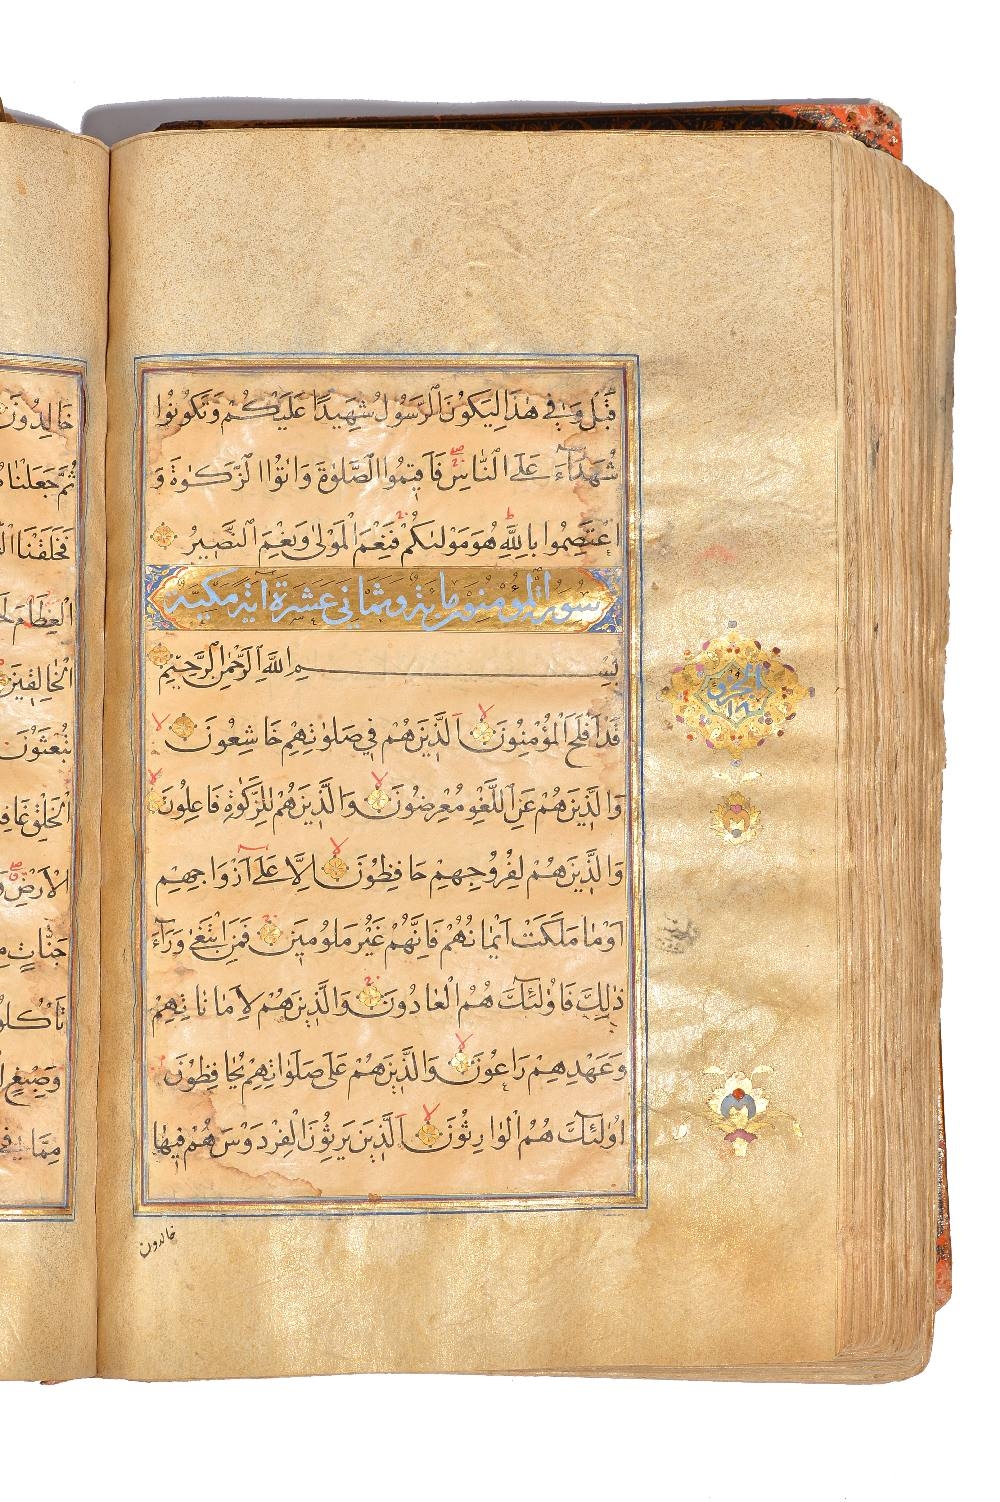 قَبْلُ وَفِي هٰذَا لِيَكُونَ الرَّسُولُ شَهِيدًا عَلَيْكُمْ وَتَكُونُوا
شُهَدَآءَ عَلَى النَّاسِ فَاَقِيمُوا الصَّلٰوةَ وَاٰتُوا الزَّكٰوةَ وَ
اعْتَصِمُوا بِاللّٰهِ هُوَ مَوْلٰىكُمْ فَنِعْمَ الْمَوْلٰى وَنِعْمَ النَّصِيرُ
سورة المؤمنون ماية وثماني عشرة آية مكية
بِسْمِ اللّٰهِ الرَّحْمٰنِ الرَّحِيمِ
قَدْ اَفْلَحَ الْمُؤْمِنُونَ اَلَّذِينَ هُمْ فِي صَلٰوتِهِمْ خَاشِعُونَ
وَالَّذِينَ هُمْ عَنِ اللَّغْوِ مُعْرِضُونَ وَالَّذِينَ هُمْ لِلزَّكٰوةِ فَاعِلُونَ
وَالَّذِينَ هُمْ لِفُرُوجِهِمْ حَافِظُونَ اِلَّا عَلٰٓى اَزْوَاجِهِمْ
اَوْ مَا مَلَكَتْ اَيْمَانُهُمْ فَاِنَّهُمْ غَيْرُ مَلُومِينَ فَمَنِ ابْتَغٰى وَرَآءَ
ذٰلِكَ فَاُولٰٓئِكَ هُمُ الْعَادُونَ وَالَّذِينَ هُمْ لِاَمَانَاتِهِمْ
وَعَهْدِهِمْ رَاعُونَ وَالَّذِينَ هُمْ عَلٰى صَلَوَاتِهِمْ يُحَافِظُونَ
اُولٰٓئِكَ هُمُ الْوَارِثُونَ اَلَّذِينَ يَرِثُونَ الْفِرْدَوْسَ هُمْ فِيهَا
خالدون
الجزو
١٨
خَالِدُونَ
ثُمَّ جَعَلْنَاهُ
فَخَلَقْنَا
الْعِظَامَ
الْخَالِقِينَ
تُبْعَثُونَ
الْخَلْقِ
الْاَرْضِ
جَنَّاتٍ
تَأْكُلُونَ
وَصِبْغٍ
مِمَّا فِي